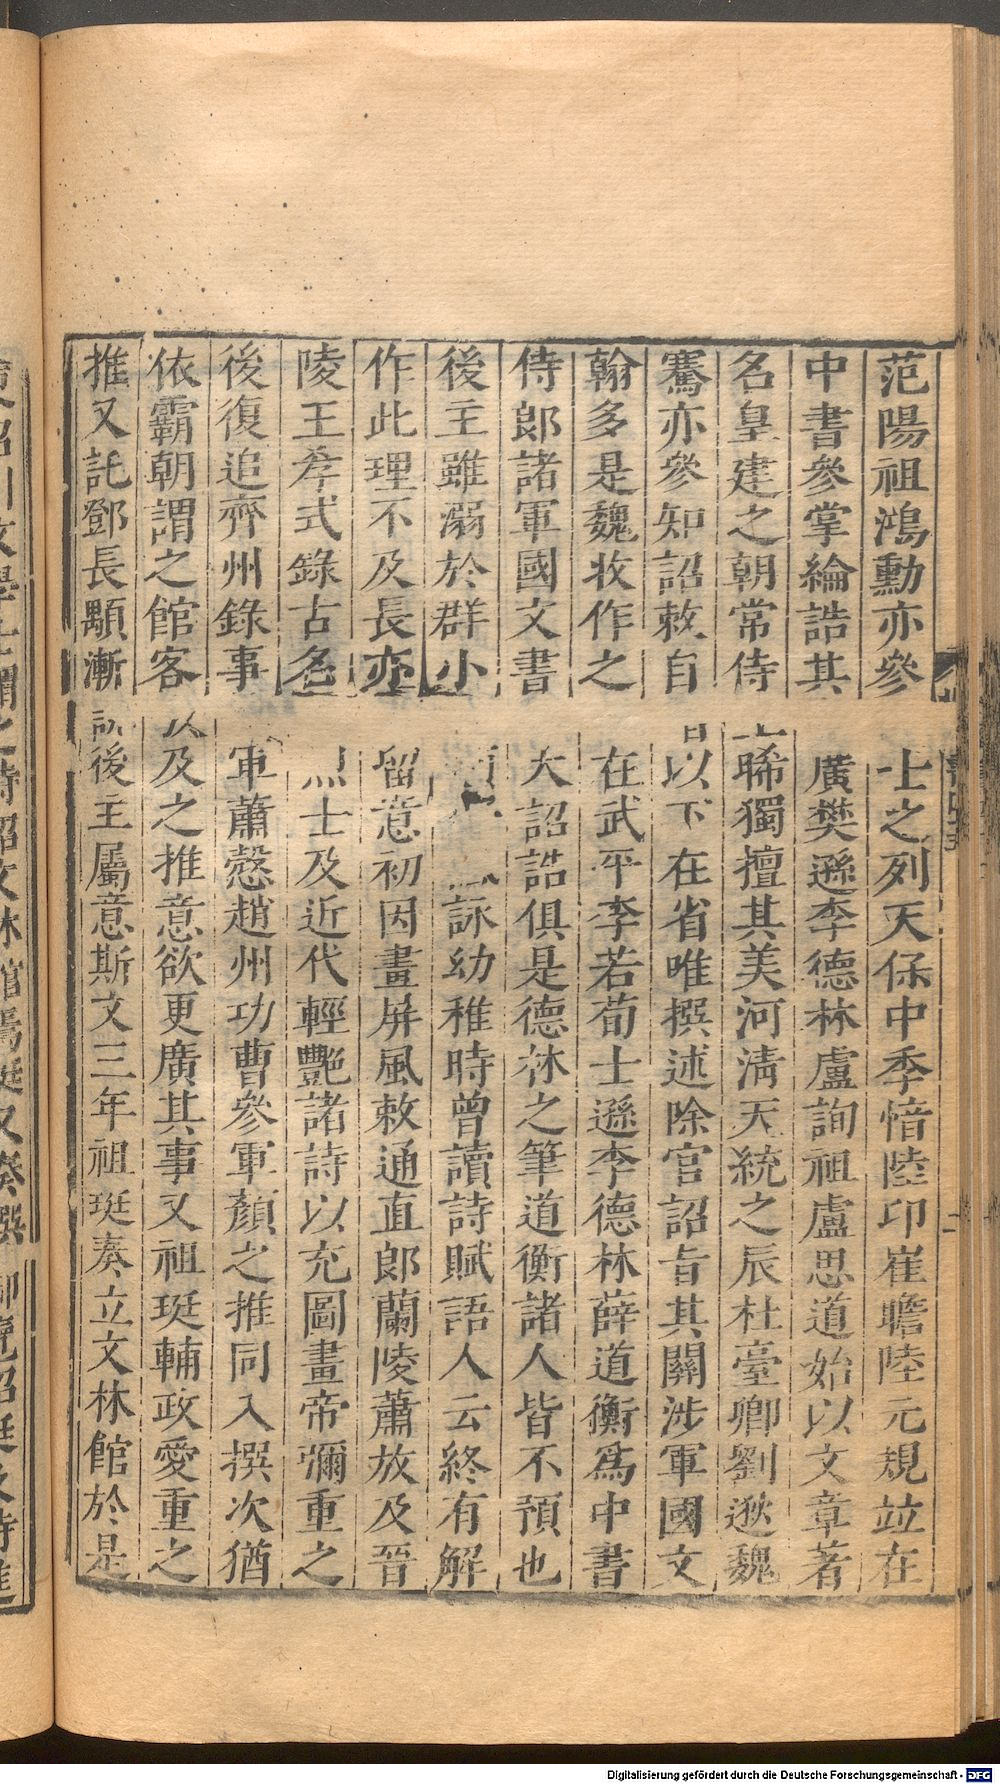 范陽祖鴻勳亦參士之列天保中季愔陸卬崔瞻陸元規竝在
中書參掌綸誥其廣樊遜李德林盧詢祖盧思道始以文章著
名皇建之朝常侍晞獨擅其美河清天統之辰杜臺卿劉逖魏
騫亦參知詔敕自以下在省唯撰述除官詔旨其關涉軍國文
翰多是魏收作之在武平李若荀士遜李德林薛道衡為中書
侍郎諸軍國文書大詔誥俱是德林之筆道衡諸人皆不預也
後主雖溺於群小詠幼稚時曾讀詩賦語人云終有解
作此理不及長亦留意初因畫屏風敕通直郎蘭陵蕭放及晉
陵王孝式錄古名士及近代輕艷諸詩以充圖畫帝彌重之
後復追齊州錄事軍蕭愨趙州功曹參軍顏之推同入撰次猶
依霸朝謂之館客以及之推意欲更廣其事又祖珽輔政愛重之
推又託鄧長顒漸後主屬意斯文三年祖珽奏立文林館於是
Digitalisierung gefördert durch die Deutsche Forschungsgemeinschaft - DFG